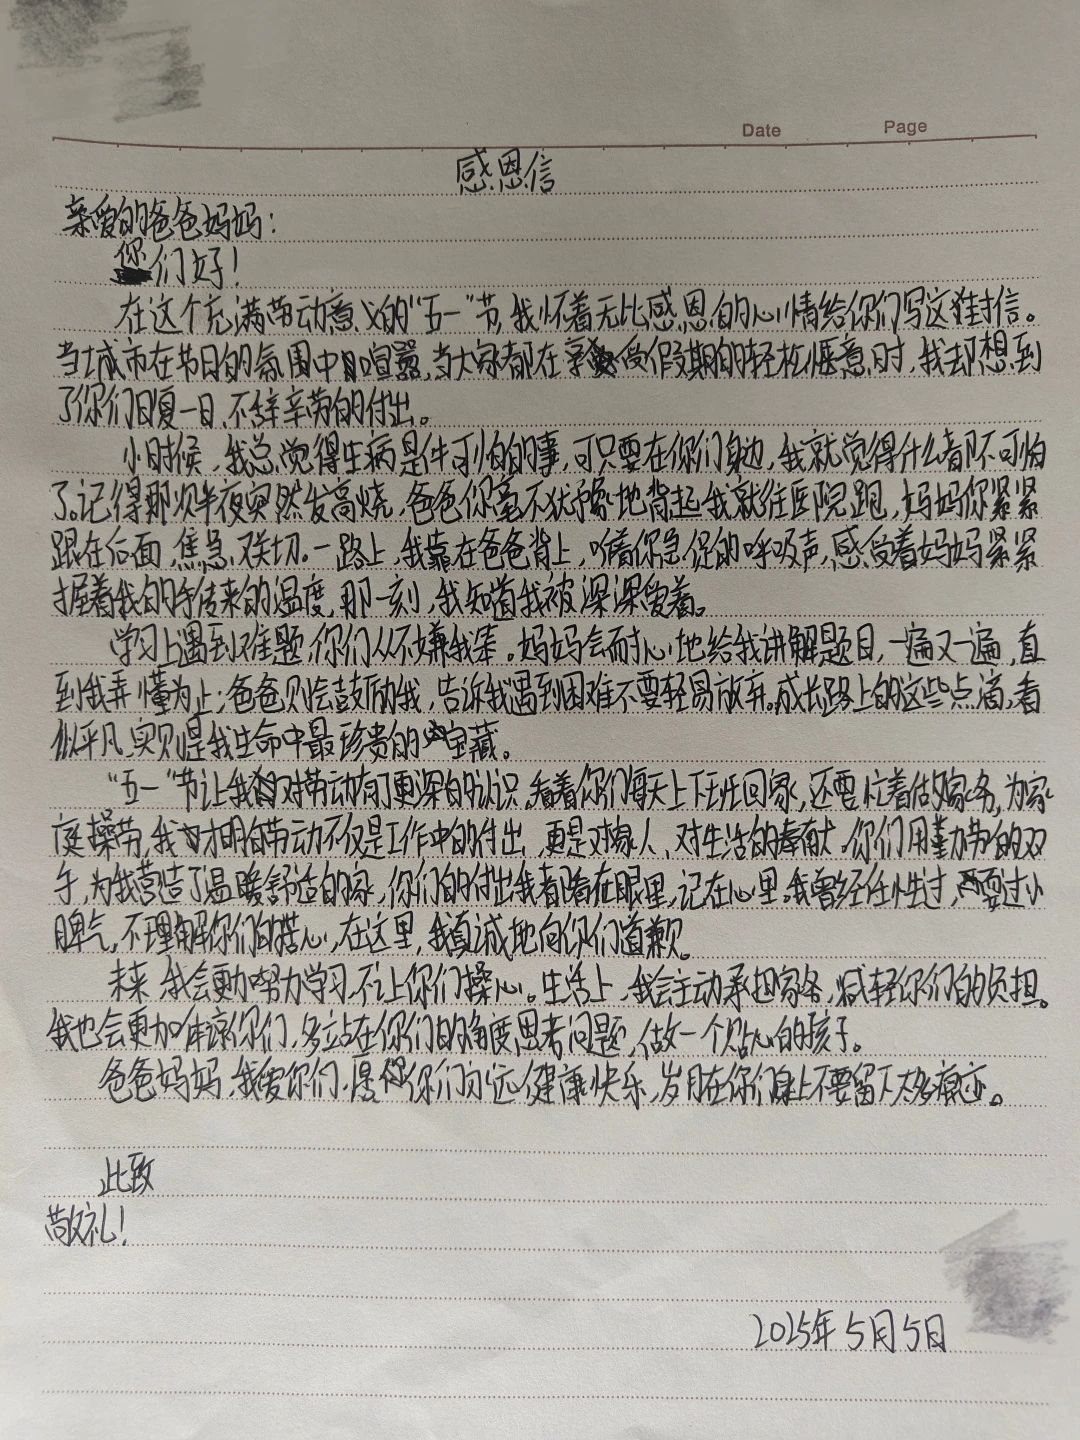 Date Page
感恩信
亲爱的爸爸妈妈：
你们好！
在这个充满劳动意义的“五一”节，我怀着无比感恩的心情给你们写这封信。
当城市在节日的氛围中喧嚣，当大家都在享受假期的轻松惬意时，我却想到
了你们日复一日、不辞辛劳的付出。
小时候，我总觉得生病是件可怕的事，可只要在你们身边，我就觉得什么都不可怕
了。记得那次半夜突然发高烧，爸爸你毫不犹豫地背起我就往医院跑，妈妈你紧紧
跟在后面，焦急关切。一路上，我靠在爸爸背上，听着你急促的呼吸声，感受着妈妈紧紧
握着我的手传来的温度，那一刻，我知道我被深深爱着。
学习上遇到难题，你们从不嫌我笨。妈妈会耐心地给我讲解题目，一遍又一遍，直
到我弄懂为止；爸爸则会鼓励我，告诉我遇到困难不要轻易放弃。成长路上的这些点滴，看
似平凡，实则是我生命中最珍贵的宝藏。
“五一”节让我对劳动有了更深的认识，看着你们每天上下班回家，还要忙着做家务，为家
庭操劳，我才明白劳动不仅是工作中的付出，更是对家人、对生活的奉献。你们用勤劳的双
手，为我营造了温暖舒适的家，你们的付出我都看在眼里，记在心里。我曾经任性过，耍过小
脾气，不理解你们的苦心，在这里，我真诚地向你们道歉。
未来，我会更加努力学习，不让你们操心。生活上，我会主动承担家务，减轻你们的负担。
我也会更加体谅你们，多站在你们的角度思考问题，做一个贴心的孩子。
爸爸妈妈，我爱你们，愿你们永远健康快乐，岁月在你们身上不要留下太多痕迹。
此致
敬礼！
2025年5月5日